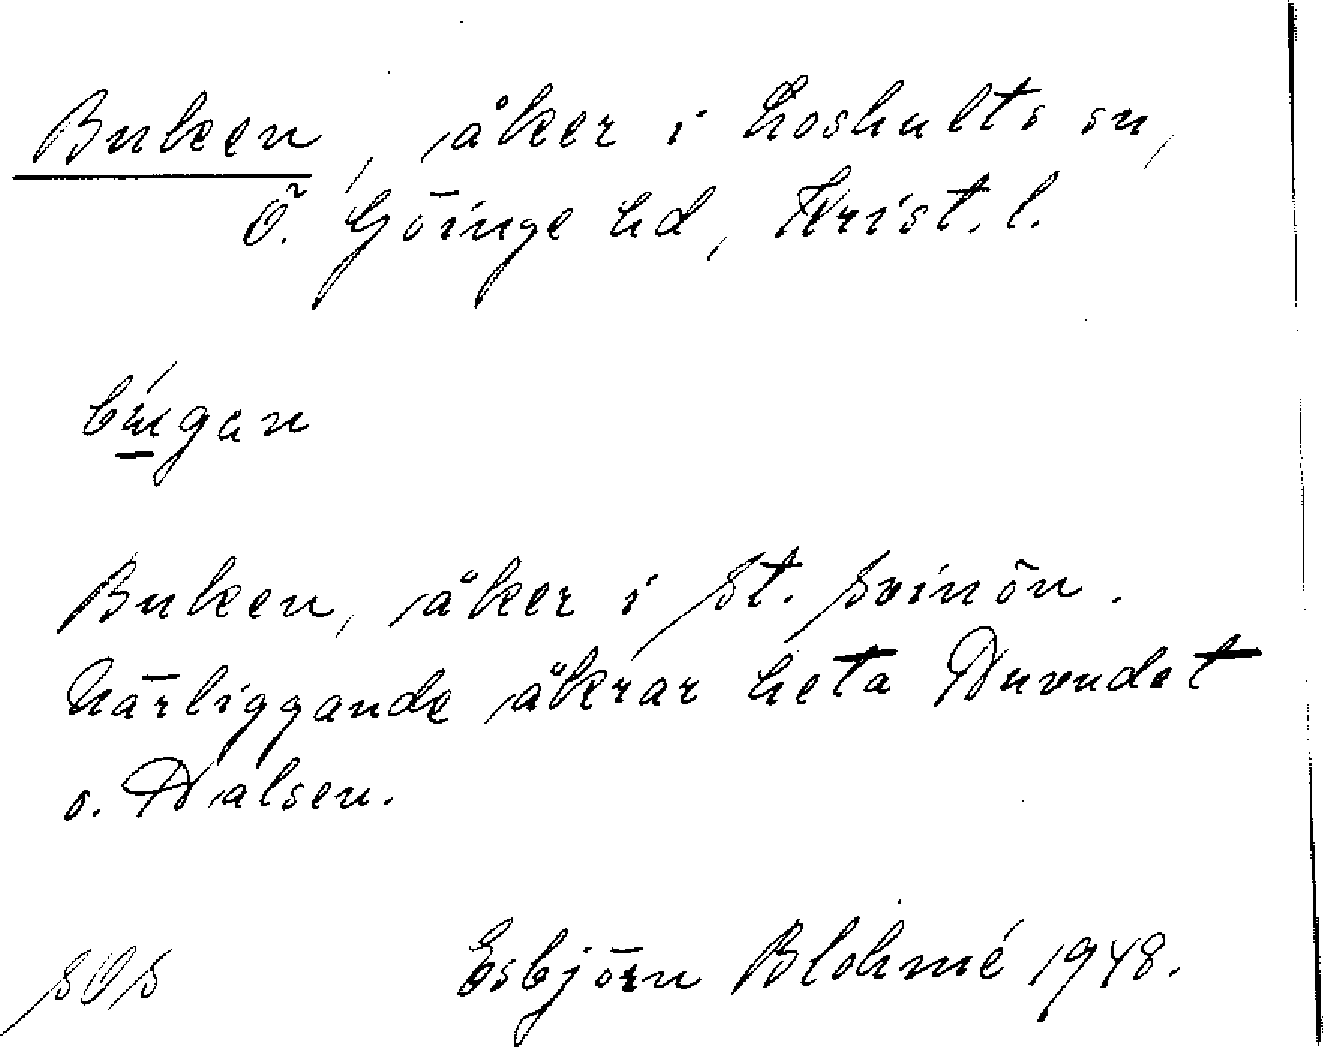 Buken, åker i Loshults sn,
Ö. Göinge hd, Krist. l.
Buken, åker i St. Svinön.
Närliggande åkrar heta
o. Dalsen.
SOS Esbjörn Blohmé 1948.